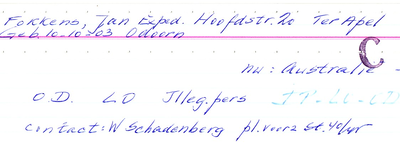 Fokkens, Jan Exped. Hoofdstr. 20 Ter Apel
Geb 10-10-03 Odoorn
C
nu: Australië -
O.D. LO Illeg. pers
contact: W Schadenberg pl. voorz St. 40/45